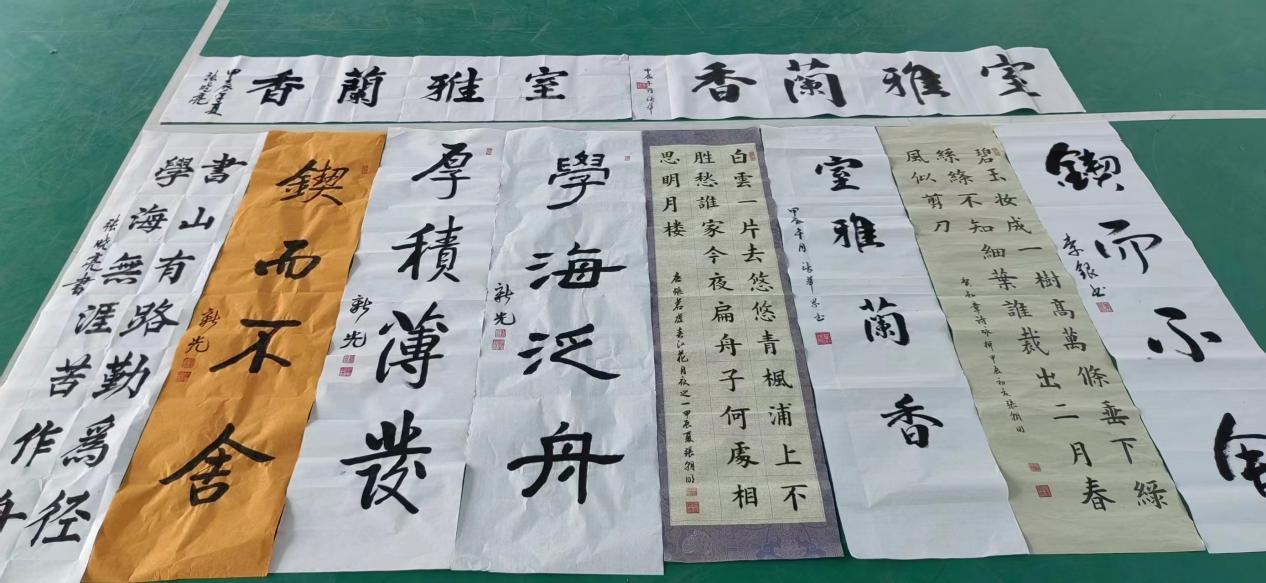 室雅蘭香
甲辰午月
室雅蘭香
甲辰夏
鍥而不舍
李銀书
碧玉妆成一樹高萬條垂下綠
絲絛不知細葉誰裁出二月春
風似剪刀
賀知章詩咏柳甲辰初夏張
室雅蘭香
甲辰午月
白雲一片去悠悠青楓浦上不
胜愁誰家今夜扁舟子何處相
思明月楼
唐張若虛春江花月夜之一甲辰夏張
學海泛舟
新光
厚積薄發
新光
鍥而不舍
新光
書山有路勤爲径
學海無涯苦作舟
張晓亮書